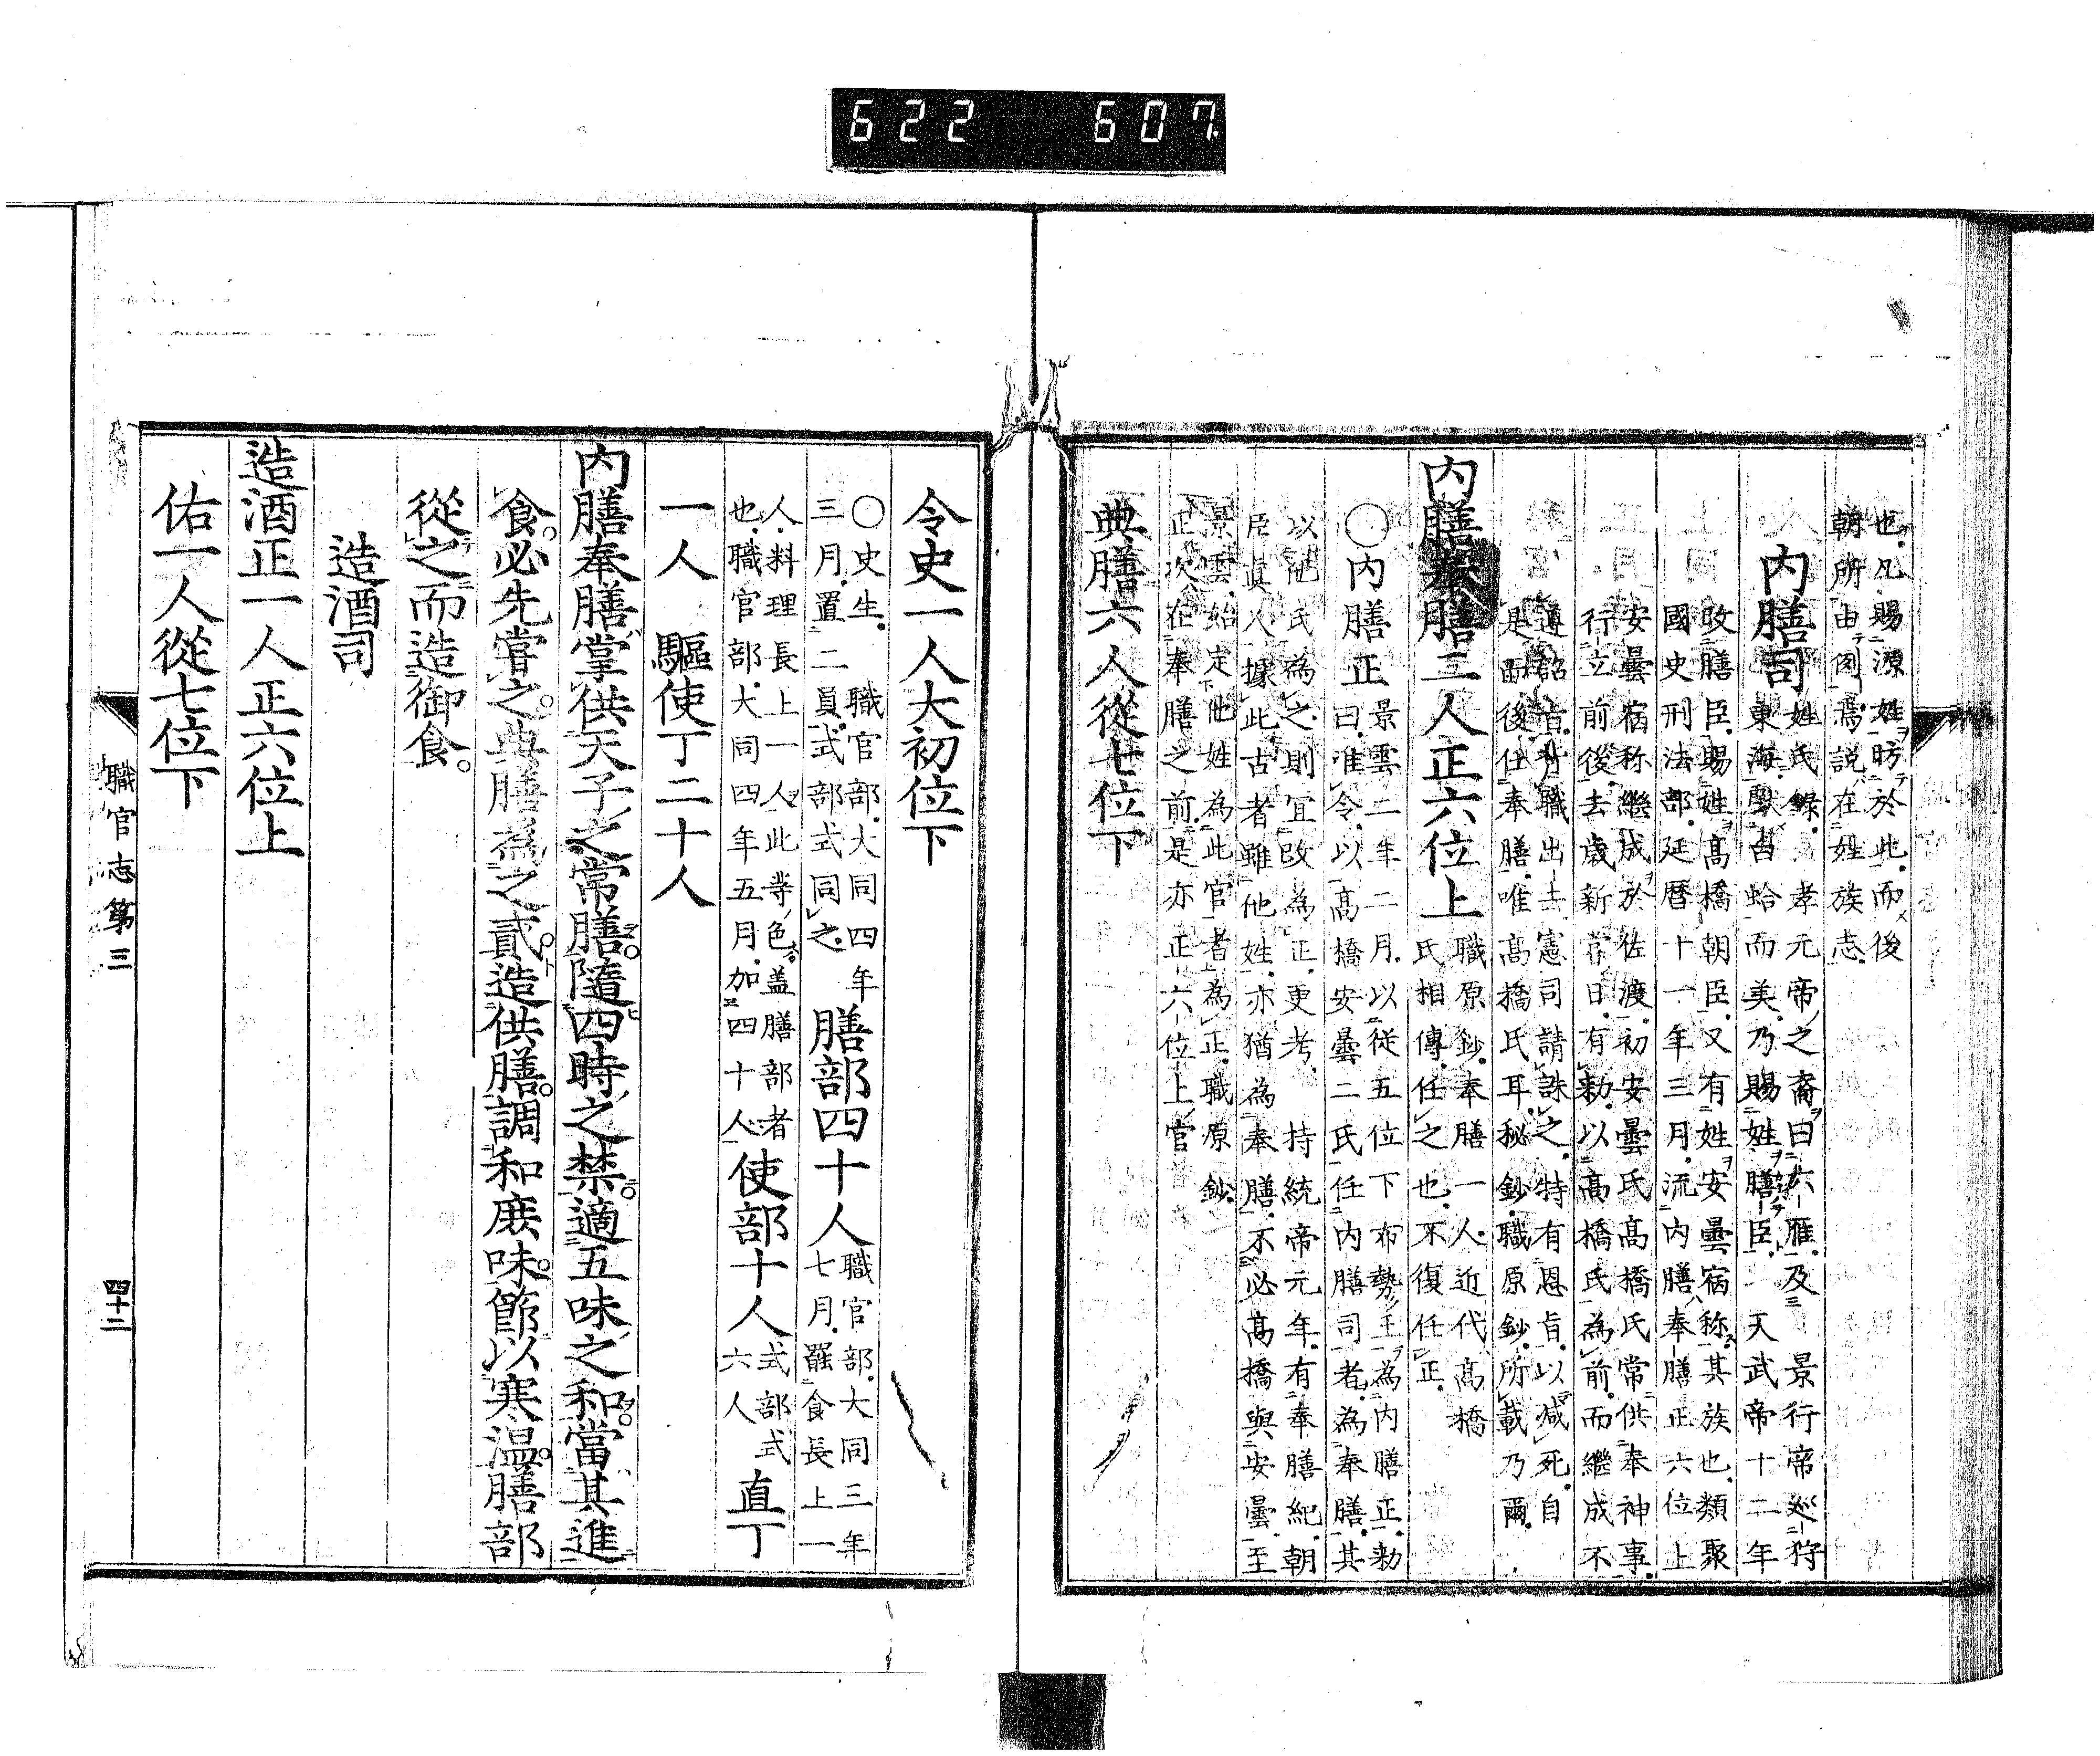 622 607
也.凡賜源姓昉於此.而後
朝所由例焉説在姓族志.
内膳司
姓氏録.孝元帝之裔曰六雁.及 景行帝巡狩
東海獻白蛤而美.乃賜姓膳臣. 天武帝十二年
改膳臣.賜姓髙橋朝臣.又有姓安曇宿称.其族也.類聚
國史刑法部.延暦十一年三月.流内膳奉膳正六位上
安曇宿称繼成於佐渡.初安曇氏髙橋氏常供奉神事.
行立前後.去歳新甞日.有勅.以髙橋氏為前.而繼成不
遵詔旨.背職出去.憲司請誅之.特有恩旨.以减死.自
是由後任奉膳.唯髙橋氏耳.秘鈔.職原鈔.所載乃爾.
内膳奉膳二人正六位上
職原鈔.奉膳一人.近代髙橋
氏相傳.任之也.不復任正.
〇内膳正
景雲二年二月.以従五位下布勢王為内膳正.勅
曰.准令.以髙橋安曇二氏任内膳司者.為奉膳.其
以他氏為之.則宜改為正.更考. 持統帝元年.有奉膳紀朝
臣真人.據此.古者雖他姓.亦猶為奉膳.不必髙橋與安曇.至
景雲.始定他姓為此官者為正.職原鈔.
正次在奉膳之前.是亦正六位上官
典膳六人從七位下
令史一人大初位下
〇史生. 職官部.大同四年
三月.置二員.式部式同之.
膳部四十人
職官部.大同三年
七月.罷食長上一
人.料理長上一人.此等色.盖膳部者
也.職官部.大同四年五月.加四十人.
使部十人
式部式
六人
直丁
一人 驅使丁二十人
内膳奉膳掌供天子之常膳。隨四時之禁。適五味之和。當其進
食。必先甞之。典膳為之貳。造供膳。調和庶味。節以寒温。膳部
從之而造御食。
造酒司
造酒正一人正六位上
佑一人從七位下
職官志第三
四十二